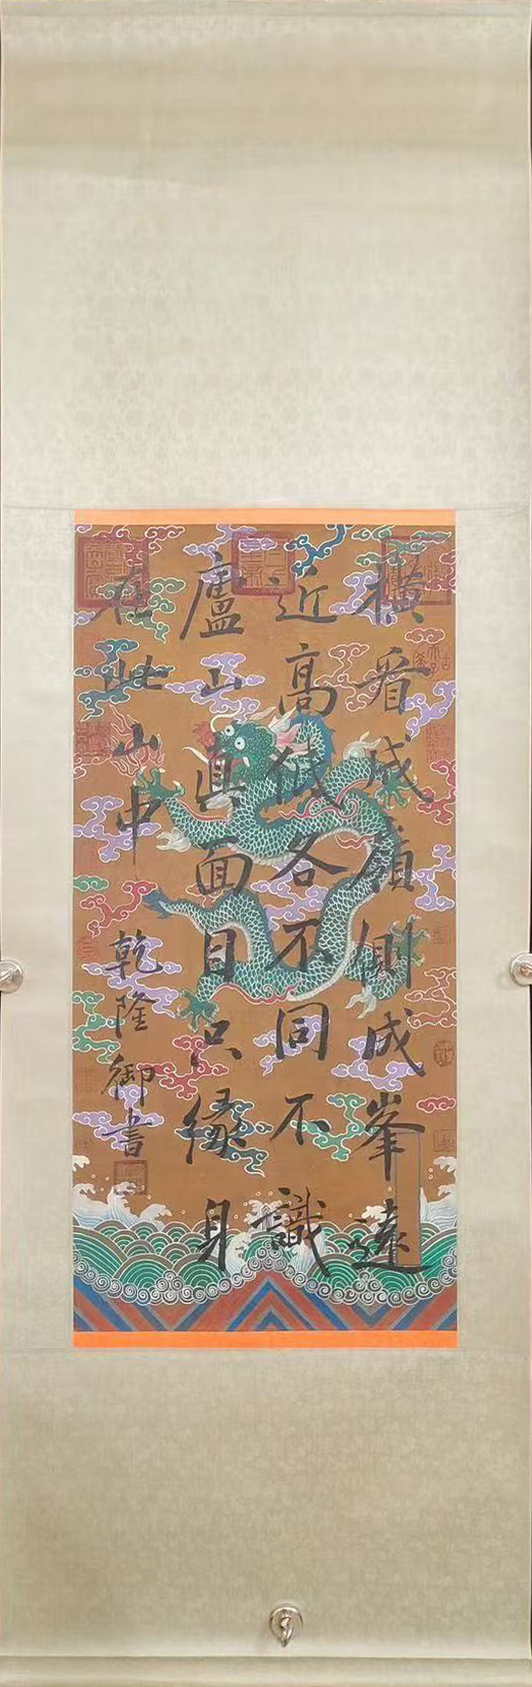 橫看成嶺側成峯遠
近高低各不同不識
廬山真面目只緣身
在此山中
乾隆御書